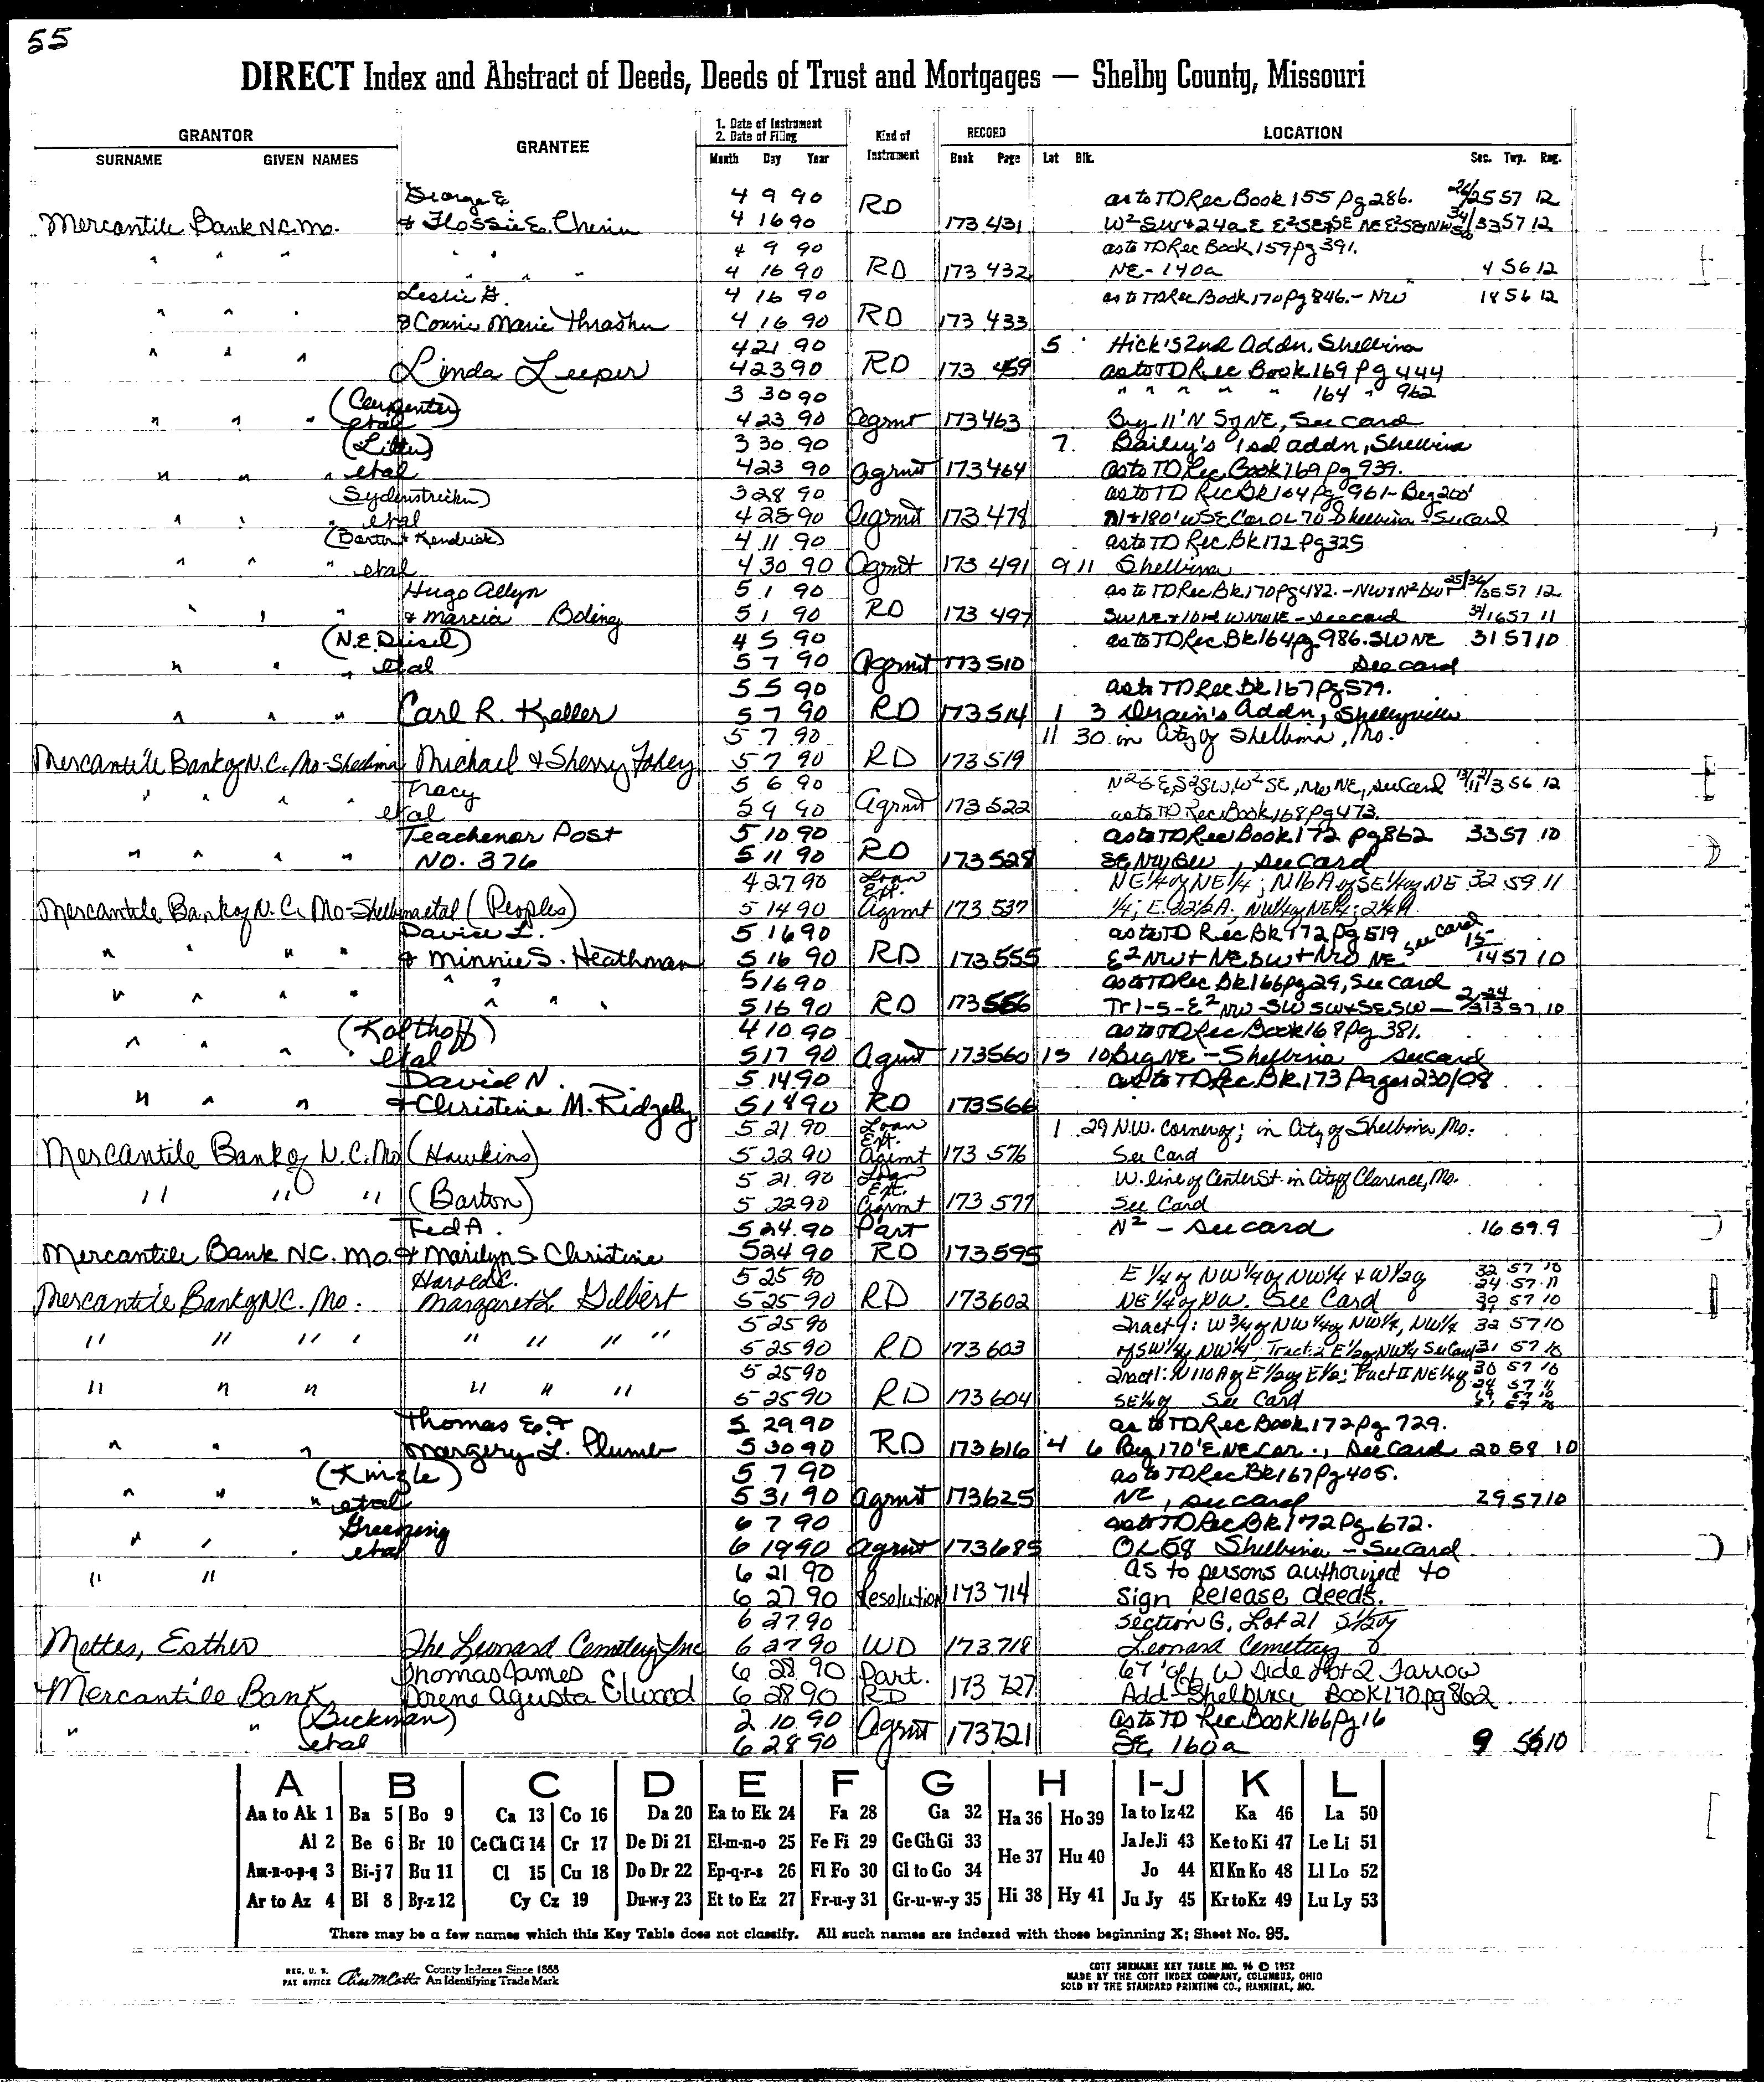 55
DIRECT Index and Abstract of Deeds, Deeds of Trust and Mortgages — Shelby County, Missouri
GRANTOR GRANTEE 1. Date of Instrument 2. Date of Filing Kind of Instrument RECORD LOCATION
SURNAME GIVEN NAMES Month Day Year Book Page Lot Blk. Sec. Twp. Rng.
George E. 4 9 90 RD as to TD Rec Book 155 Pg 286. 57 12
Mercantile Bank N.C. Mo. & Flossie E. 4 16 90 173 431 57 12
" " " " " 4 9 90 as to TD Rec Book 159 Pg 391.
" " 4 16 90 RD 173 432 NE - 140a 4 56 12
Leslie G. 4 16 90 as to TD Rec Book 170 Pg 846. - NW 18 56 12
" " " & Connie Marie Thrasher 4 16 90 RD 173 433
4 21 90 5 Hick's 2nd Addn. Shelbina
" " " Linda Leeper 4 23 90 RD 173 459 as to TD Rec Book 169 Pg 444
(Carpenter) 3 30 90 " " " " " 164 " 962
" " " etal 4 23 90 Agrmt 173 463 Beg 11' N NE, See Card
3 30 90 7 Bailey's addn, Shelbina
" " " etal 4 23 90 Agrmt 173 464 as to TD Rec Book 169 Pg 939.
(Sydenstricker) 3 28 90 as to TD Rec Bk 164 Pg 961 - Beg 200'
" " " etal 4 25 90 Agrmt 173 478 N & 180' W SE Cor OL 70 Shelbina - See Card
(Barton & Kendrick) 4 11 90 as to TD Rec Bk 172 Pg 325
" " " etal 4 30 90 Agrmt 173 491 9 11 Shelbina
Hugo Allyn 5 1 90 as to TD Rec Bk 170 Pg 482. 57 12
" " " & Marcia Boling 5 1 90 RD 173 497 See card 57 11
(N.E. Diesel) 4 5 90 as to TD Rec Bk 164 Pg 986. SW NE 31 57 10
" " " etal 5 7 90 Agrmt 173 510 See card
5 5 90 as to TD Rec Bk 167 Pg 579.
" " " Carl R. Keller 5 7 90 RD 173 514 1 3 Addn, Shelbyville
5 7 90 11 30 in City of Shelbina, Mo.
Mercantile Bank of N.C. Mo-Shelbina Michael & Sherry Fohey 5 7 90 RD 173 519
Tracy 5 6 90 N² SE, S² SW, W² SE, NW NE, See Card 56 12
" " " " etal 5 9 90 Agrmt 173 522 as to TD Rec Book 168 Pg 473.
Teachenor Post 5 10 90 as to TD Rec Book 172 Pg 862 33 57 10
" " " " NO. 376 5 11 90 RD 173 528 See Card
4 27 90 Loan Ext. NE 1/4 of NE 1/4; N 16 A of SE 1/4 of NE 32 59 11
Mercantile Bank of N.C. Mo-Shelbina etal (Peoples) 5 14 90 Agrmt 173 537 1/4; E. 22 1/2 A. NW 1/4 of NE 1/4; 2 1/4 A.
L. 5 16 90 as to TD Rec Bk 172 Pg 519 See Card 15-
" " " " & Minnie S. Heathman 5 16 90 RD 173 555 E² NW & NE SW & NW NE 14 57 10
" " 5 16 90 as to TD Rec Bk 166 Pg 29, See card
" " " " " " " 5 16 90 RD 173 556 Tr 1-5-E² NW - SW SW & SE SW — 57 10
(Kolthoff) 4 10 90 as to TD Rec Book 168 Pg 381.
" " " " etal 5 17 90 Agrmt 173 560 13 10 Beg NE - Shelbina See card
David N. 5 14 90 as to TD Rec Bk 173 Pages 230/08
" " " & Christine M. Ridgely 5 18 90 RD 173 566
5 21 90 Loan Ext. 1 29 N.W. corner of; in City of Shelbina, Mo.
Mercantile Bank of N.C. Mo (Hawkins) 5 22 90 Agrmt 173 576 See Card
5 21 90 Loan Ext. W. line of Center St. in City of Clarence, Mo.
" " " (Barton) 5 22 90 Agrmt 173 577 See Card
Ted A. 5 24 90 Part N² - See card 16 59 9
Mercantile Bank N.C. Mo. & Marilyn S. Christine 5 24 90 RD 173 595
Harold C. 5 25 90 E 1/4 of NW 1/4 of NW 1/4 & W 1/2 of 32 57 10 24 57 11
Mercantile Bank of N.C. Mo. Margaret L. Gilbert 5 25 90 RD 173 602 NE 1/4 of NW. See Card 57 10
5 25 90 Tract 1: W 3/4 of NW 1/4 of NW 1/4, NW 1/4 32 57 10
" " " " " " " " 5 25 90 RD 173 603 of SW 1/4 of NW 1/4 Tract: 2 E 1/2 of NW 1/4 See Card 31 57 10
5 25 90 Tract 1: N 110 A of E 1/2 of E 1/2; Tract II NE 1/4 of 30 57 10
" " " " " " 5 25 90 RD 173 604 SE 1/4 of See Card
Thomas E. & 5 29 90 as to TD Rec Book 172 Pg 729.
" " " Margery L. Plumb 5 30 90 RD 173 616 4 6 Beg 170' E NE Cor., See Card 20 58 10
(Kinzle) 5 7 90 as to TD Rec Bk 167 Pg 405.
" " " etal 5 31 90 Agrmt 173 625 NE, See card 29 57 10
6 7 90 as to TD Rec Bk 172 Pg 672.
" " " etal 6 19 90 Agrmt 173 685 OL 58 Shelbina - See Card
6 21 90 as to persons authorized to
" " 6 27 90 Resolution 173 714 sign Release deeds.
6 27 90 Section G, Lot 21 S 1/2 of
Mettes, Esther The Leonard Cemetery, Inc 6 27 90 WD 173 718 Leonard Cemetery
Thomas James 6 28 90 Part. 67' off W side Lot 2 Farrow
Mercantile Bank Dorene Agusta Elwood 6 28 90 RD 173 727 Add - Shelbina Book 170 Pg 862
(Buckman) 2 10 90 as to TD Rec Book 166 Pg 16
" " etal 6 28 90 Agrmt 173 721 SE 160a 9 56 10
A B C D E F G H I-J K L
Aa to Ak 1 Ba 5 Bo 9 Ca 13 Co 16 Da 20 Ea to Ek 24 Fa 28 Ga 32 Ha 36 Ho 39 Ia to Iz 42 Ka 46 La 50
Al 2 Be 6 Br 10 Ce Ch Ci 14 Cr 17 De Di 21 El-m-n-o 25 Fe Fi 29 Ge Gh Gi 33 He 37 Hu 40 Ja Je Ji 43 Ke to Ki 47 Le Li 51
Am-n-o-p-q 3 Bi-j 7 Bu 11 Cl 15 Cu 18 Do Dr 22 Ep-q-r-s 26 Fl Fo 30 Gl to Go 34 Jo 44 Kl Kn Ko 48 Ll Lo 52
Ar to Az 4 Bl 8 By-z 12 Cy Cz 19 Du-w-y 23 Et to Ez 27 Fr-u-y 31 Gr-u-w-y 35 Hi 38 Hy 41 Ju Jy 45 Kr to Kz 49 Lu Ly 53
There may be a few names which this Key Table does not classify. All such names are indexed with those beginning X; Sheet No. 95.
REG. U. S. PAT OFFICE County Indexes Since 1888 An Identifying Trade Mark
COTT SURNAME KEY TABLE NO. 96 © 1952
MADE BY THE COTT INDEX COMPANY, COLUMBUS, OHIO
SOLD BY THE STANDARD PRINTING CO., HANNIBAL, MO.